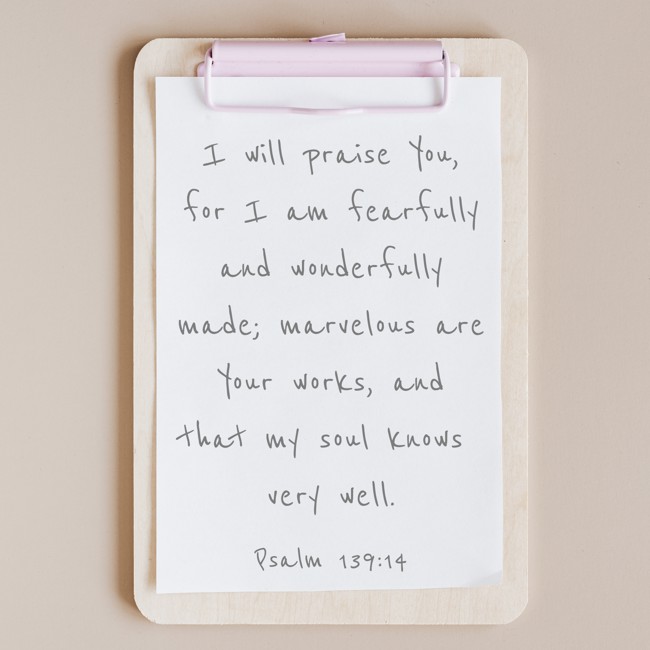 I will praise You,
for I am fearfully
and wonderfully
made; marvelous are
Your works, and
that my soul knows
very well.
Psalm 139:14